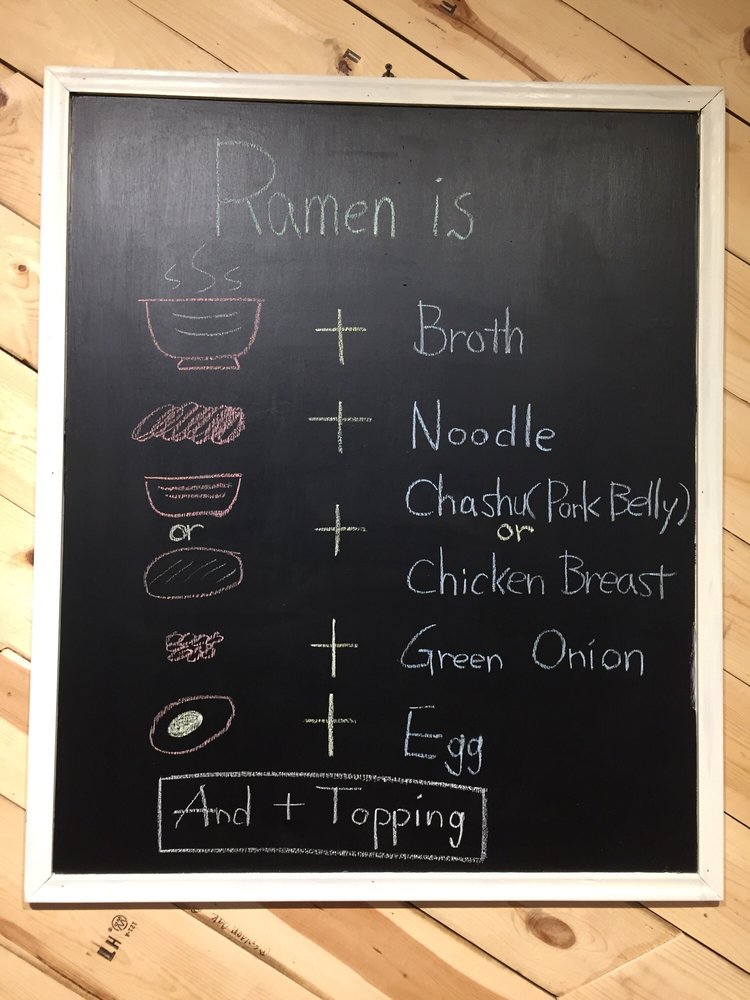 Ramen is
+ Broth
+ Noodle
Chashu(Pork Belly)
or + or
Chicken Breast
+ Green Onion
+ Egg
And + Topping